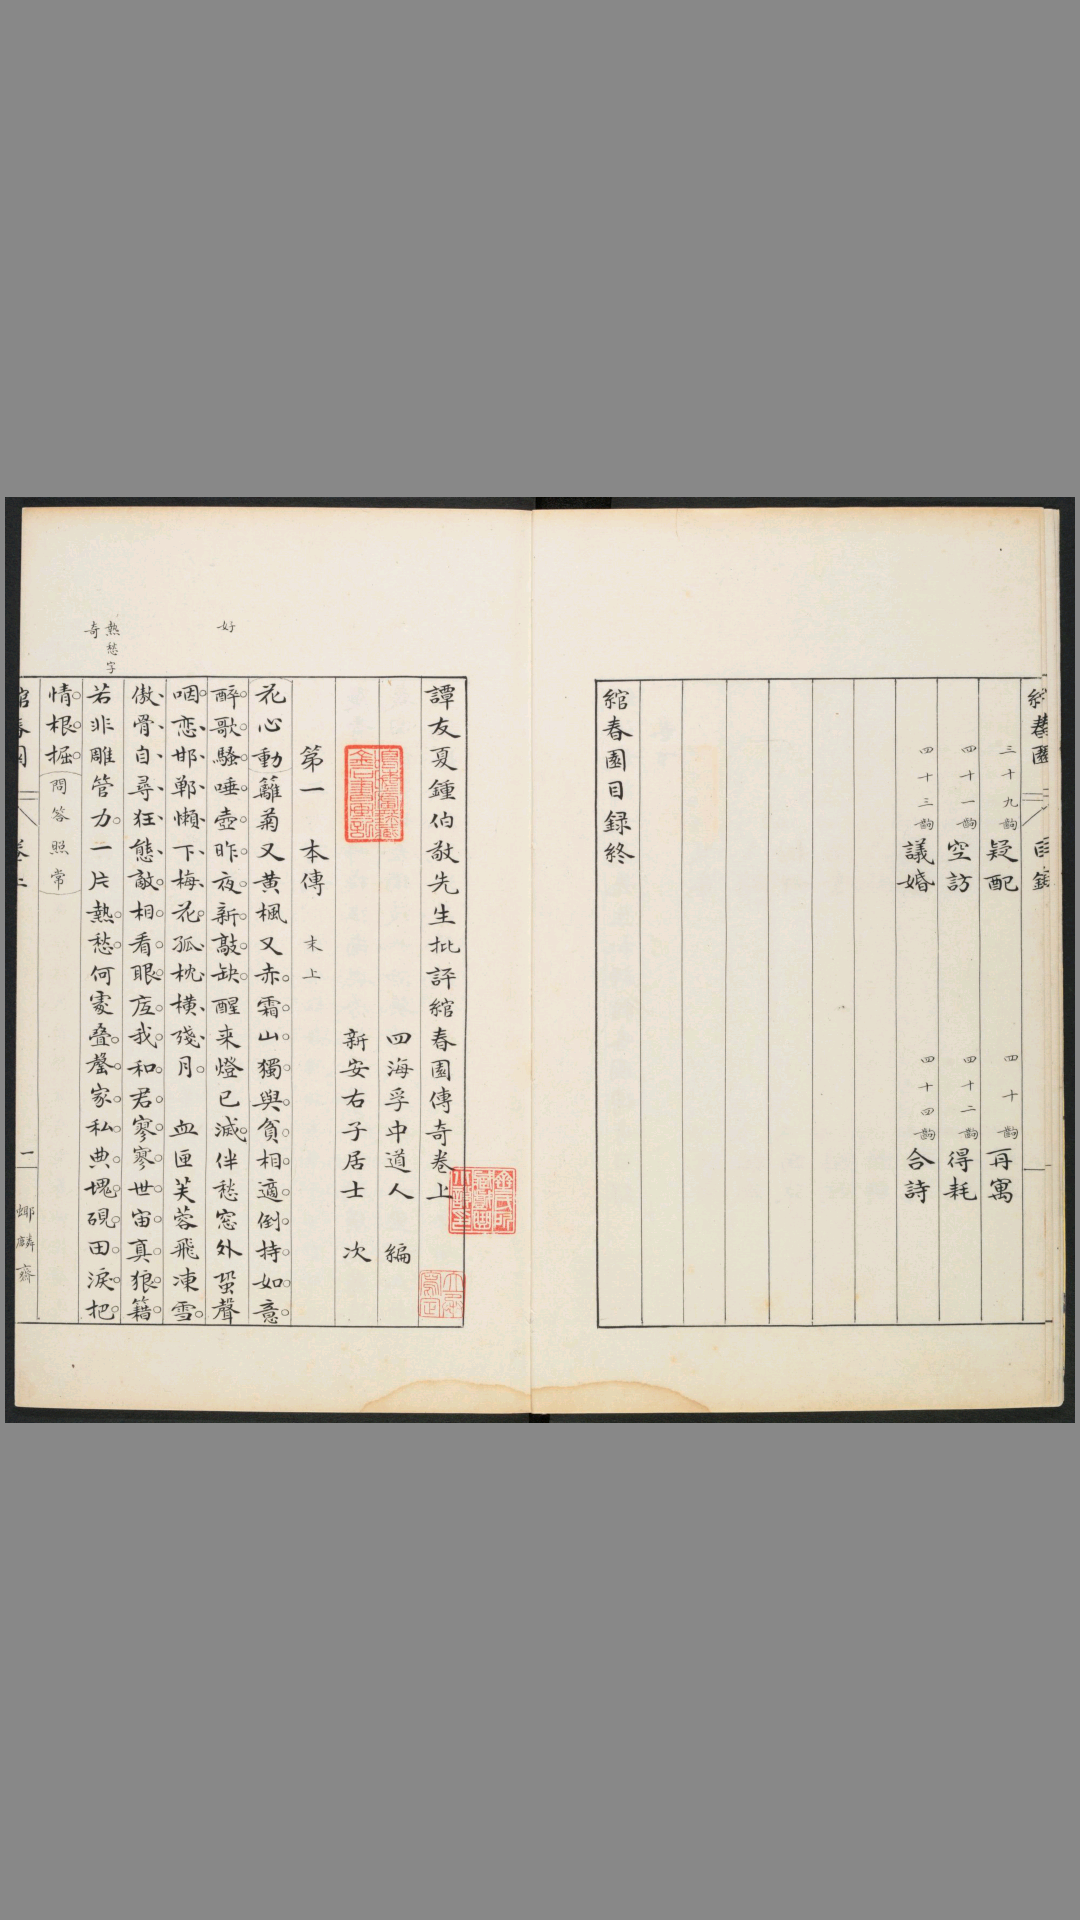 三十九齣 疑配 四十齣 再寓
四十一齣 空訪 四十二齣 得耗
四十三齣 議婚 四十四齣 合詩
綰春園目録終
譚友夏鍾伯敬先生批評綰春園傳奇卷上
四海孚中道人 編
新安右子居士 次
第一 本傳 末上
花心動籬菊又黄楓又赤霜山獨與貧相適倒持如意
好
醉歌騷唾壺昨夜新敲缺醒来燈已滅伴愁窓外蛩聲
咽恋邯鄲懶下梅花孤枕横殘月 血匣芙蓉飛凍雪
傲骨自尋狂態敵相看眼底我和君寥寥世宙真狼籍
熱愁字
奇
若非雕管力一片熱愁何處叠罄家私典塊硯田淚把
情根掘問答照常